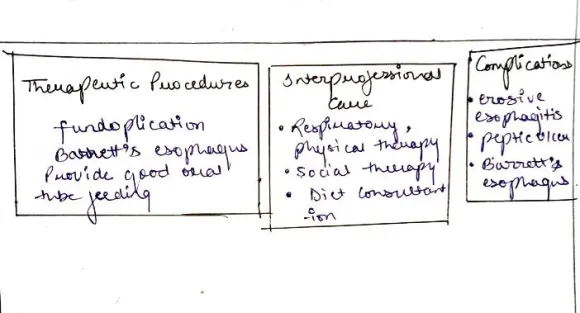 Therapeutic Procedures
fundoplication
Barrett's esophagus
Provide good oral
tube feeding
Interprofessional
Care
• Respiratory,
physical therapy
• Social therapy
• Diet consultant
ion
Complications
• erosive
esophagitis
• peptic ulcer
• Barrett's
esophagus